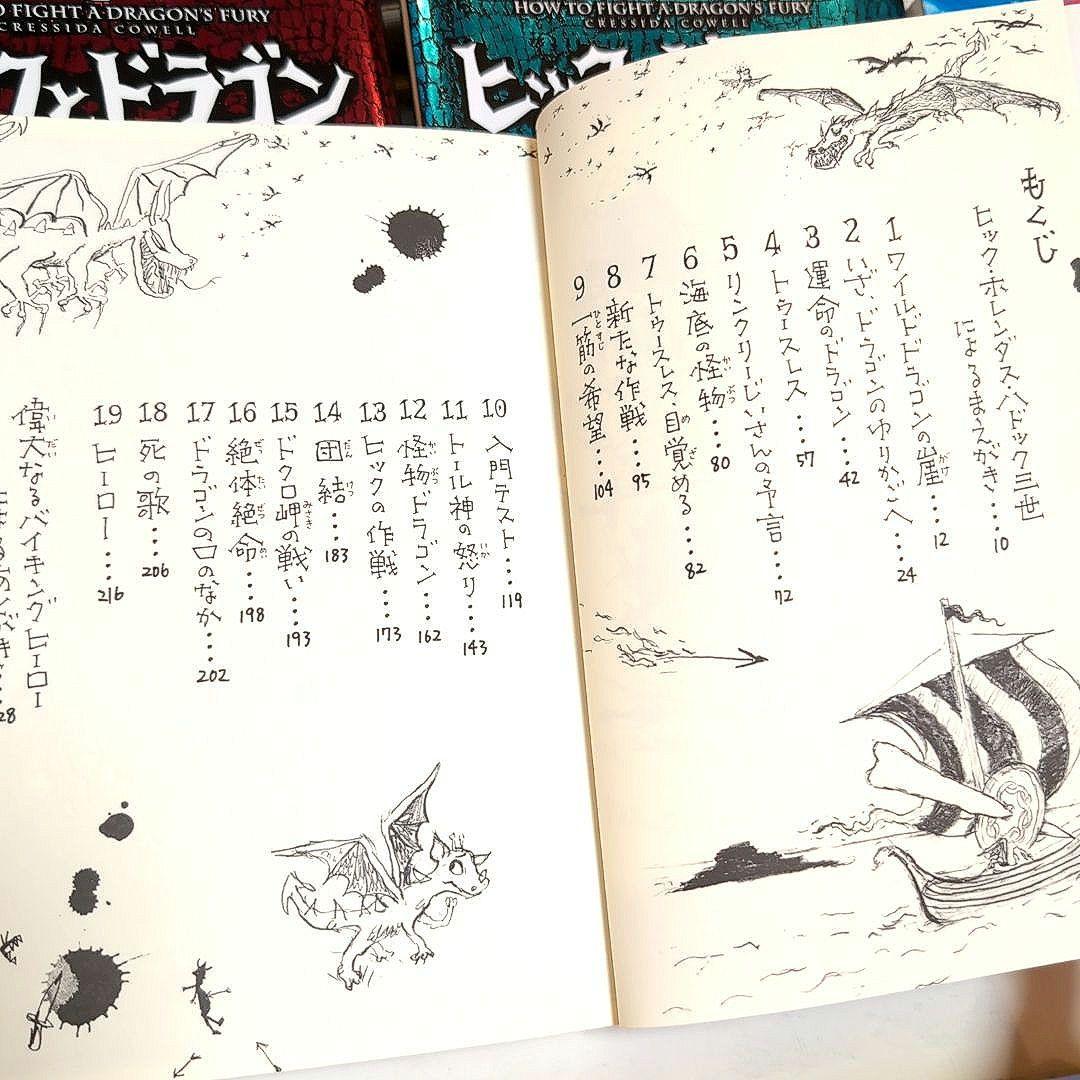 O FIGHT A DRAGON'S FURY
CRESSIDA COWELL
クとドラゴン
HOW TO FIGHT A DRAGON'S FURY
CRESSIDA COWELL
ヒック
もくじ
ヒック・ホレンダス・ハドック三世
によるまえがき…10
1 ワイルドドラゴンの崖…12
2 いざ、ドラゴンのゆりかごへ…24
3 運命のドラゴン…42
4 トゥースレス…57
5 リンクリーじいさんの予言…72
6 海底の怪物…80
7 トゥースレス、目覚める…82
8 新たな作戦…95
9 一筋の希望…104
10 入門テスト…119
11 トール神の怒り…143
12 怪物ドラゴン…162
13 ヒックの作戦…173
14 団結…183
15 ドクロ岬の戦い…193
16 絶体絶命…198
17 ドラゴンの口のなか…202
18 死の歌…206
19 ヒーロー…216
偉大なるバイキングヒーロー